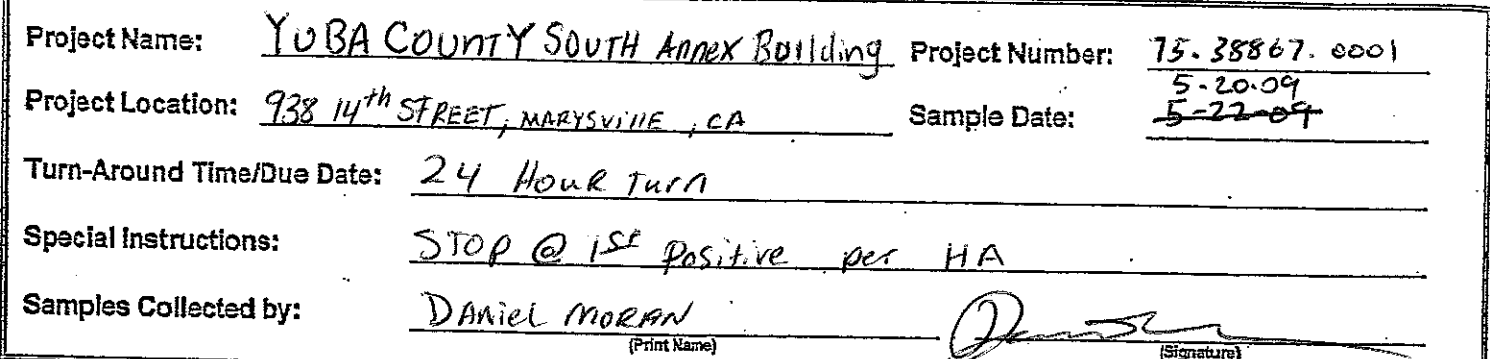 Project Name: YUBA COUNTY SOUTH Annex Building Project Number: 75.38867.0001
5-20-09
Project Location: 938 14th STREET, MARYSVILLE, CA Sample Date: 5-22-09
Turn-Around Time/Due Date: 24 Hour Turn
Special Instructions: STOP @ 1st Positive per HA
Samples Collected by: DANIEL MORAN
(Print Name) (Signature)